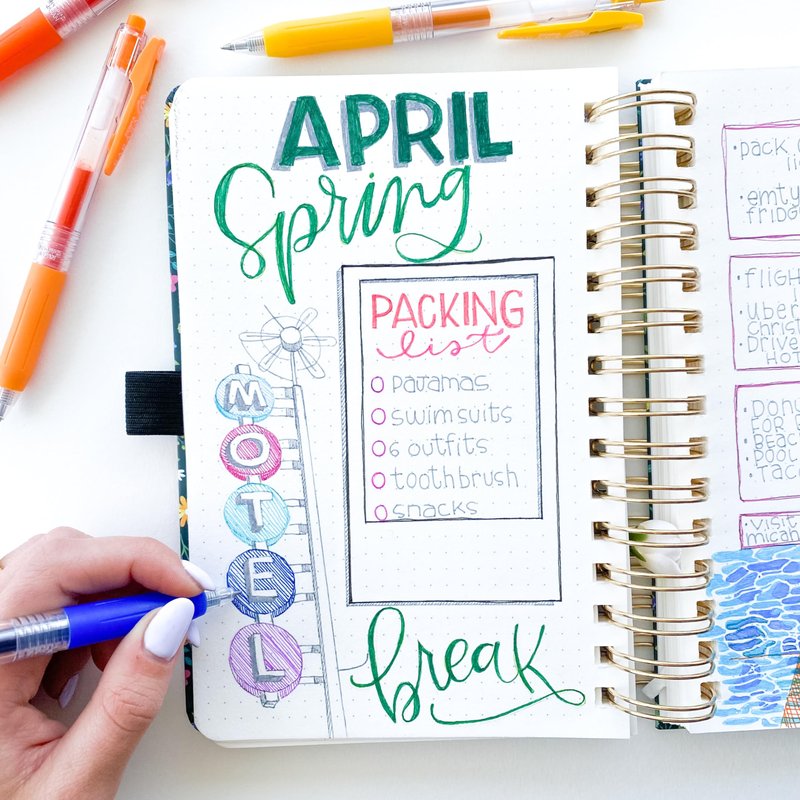 APRIL
Spring
PACKING
list
pajamas
swimsuits
6 outfits
toothbrush
snacks
MOTEL
break
• pack
• emty
FRIDG
• FLIGH
• Uber
Christ
• Drive
HOT
FOR
• BEAC
• POOL
• TAC
visit
micah